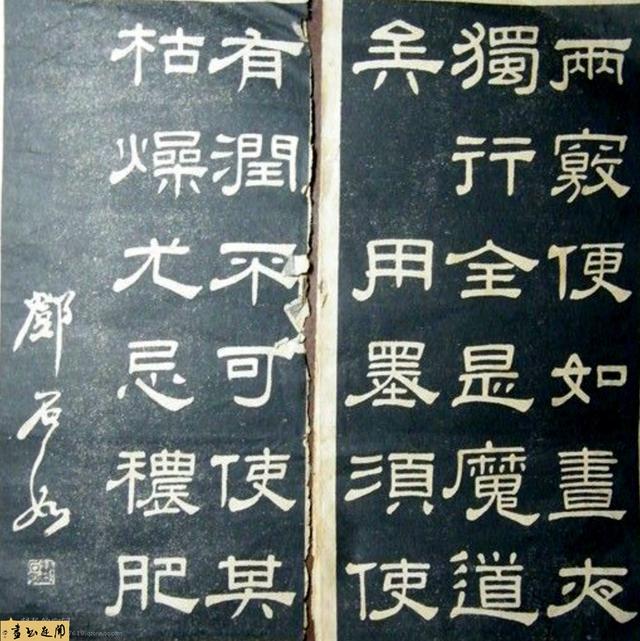 兩竅便如晝夜
獨行全是魔道
矣 用墨須使
有潤不可使其
枯燥尤忌穠肥
鄧石如